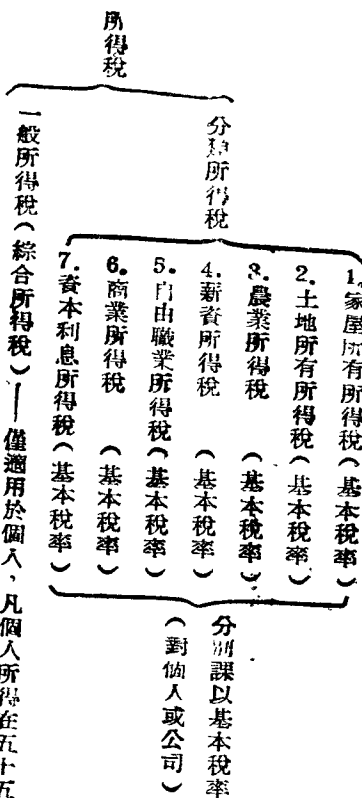 所得稅
分類所得稅
1.家屋所有所得稅（基本稅率）
2.土地所有所得稅（基本稅率）
3.農業所得稅（基本稅率）
4.薪資所得稅（基本稅率）
5.自由職業所得稅（基本稅率）
6.商業所得稅（基本稅率）
7.資本利息所得稅（基本稅率）
分別課以基本稅率
（對個人或公司）
一般所得稅（綜合所得稅）——僅適用於個人，凡個人所得在五十五